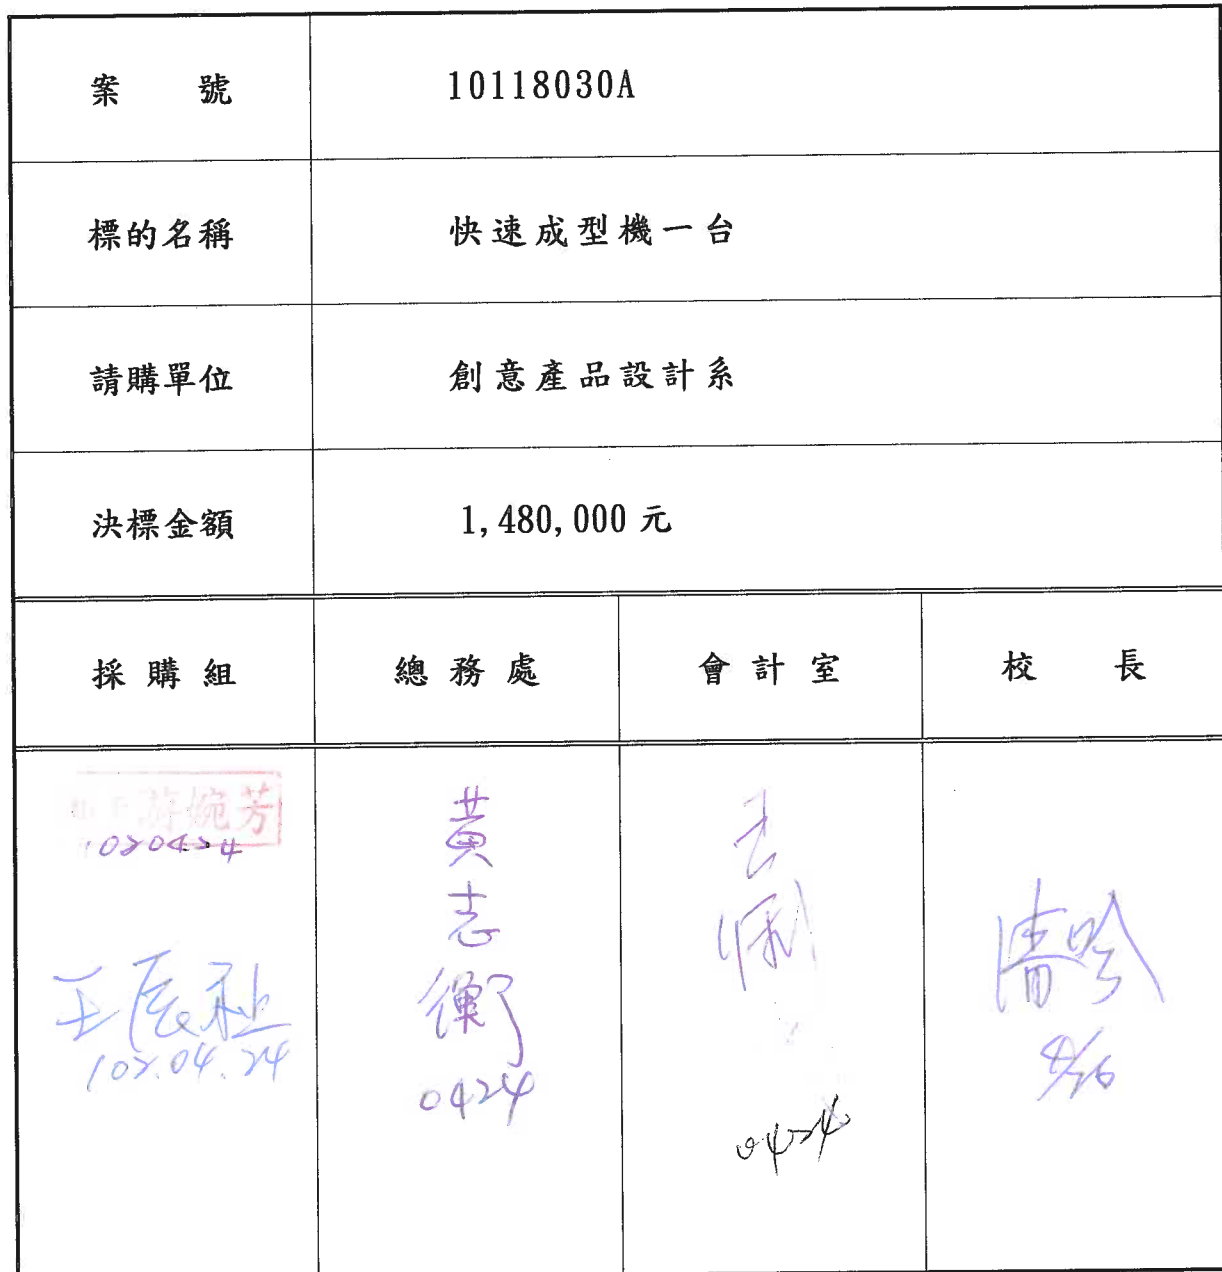 案 號 10118030A
標的名稱 快速成型機一台
請購單位 創意產品設計系
決標金額 1,480,000 元
採購組 總務處 會計室 校 長
婉芳
1020424
王辰
102.04.24
黃
志
衡
0424
0424
4/26